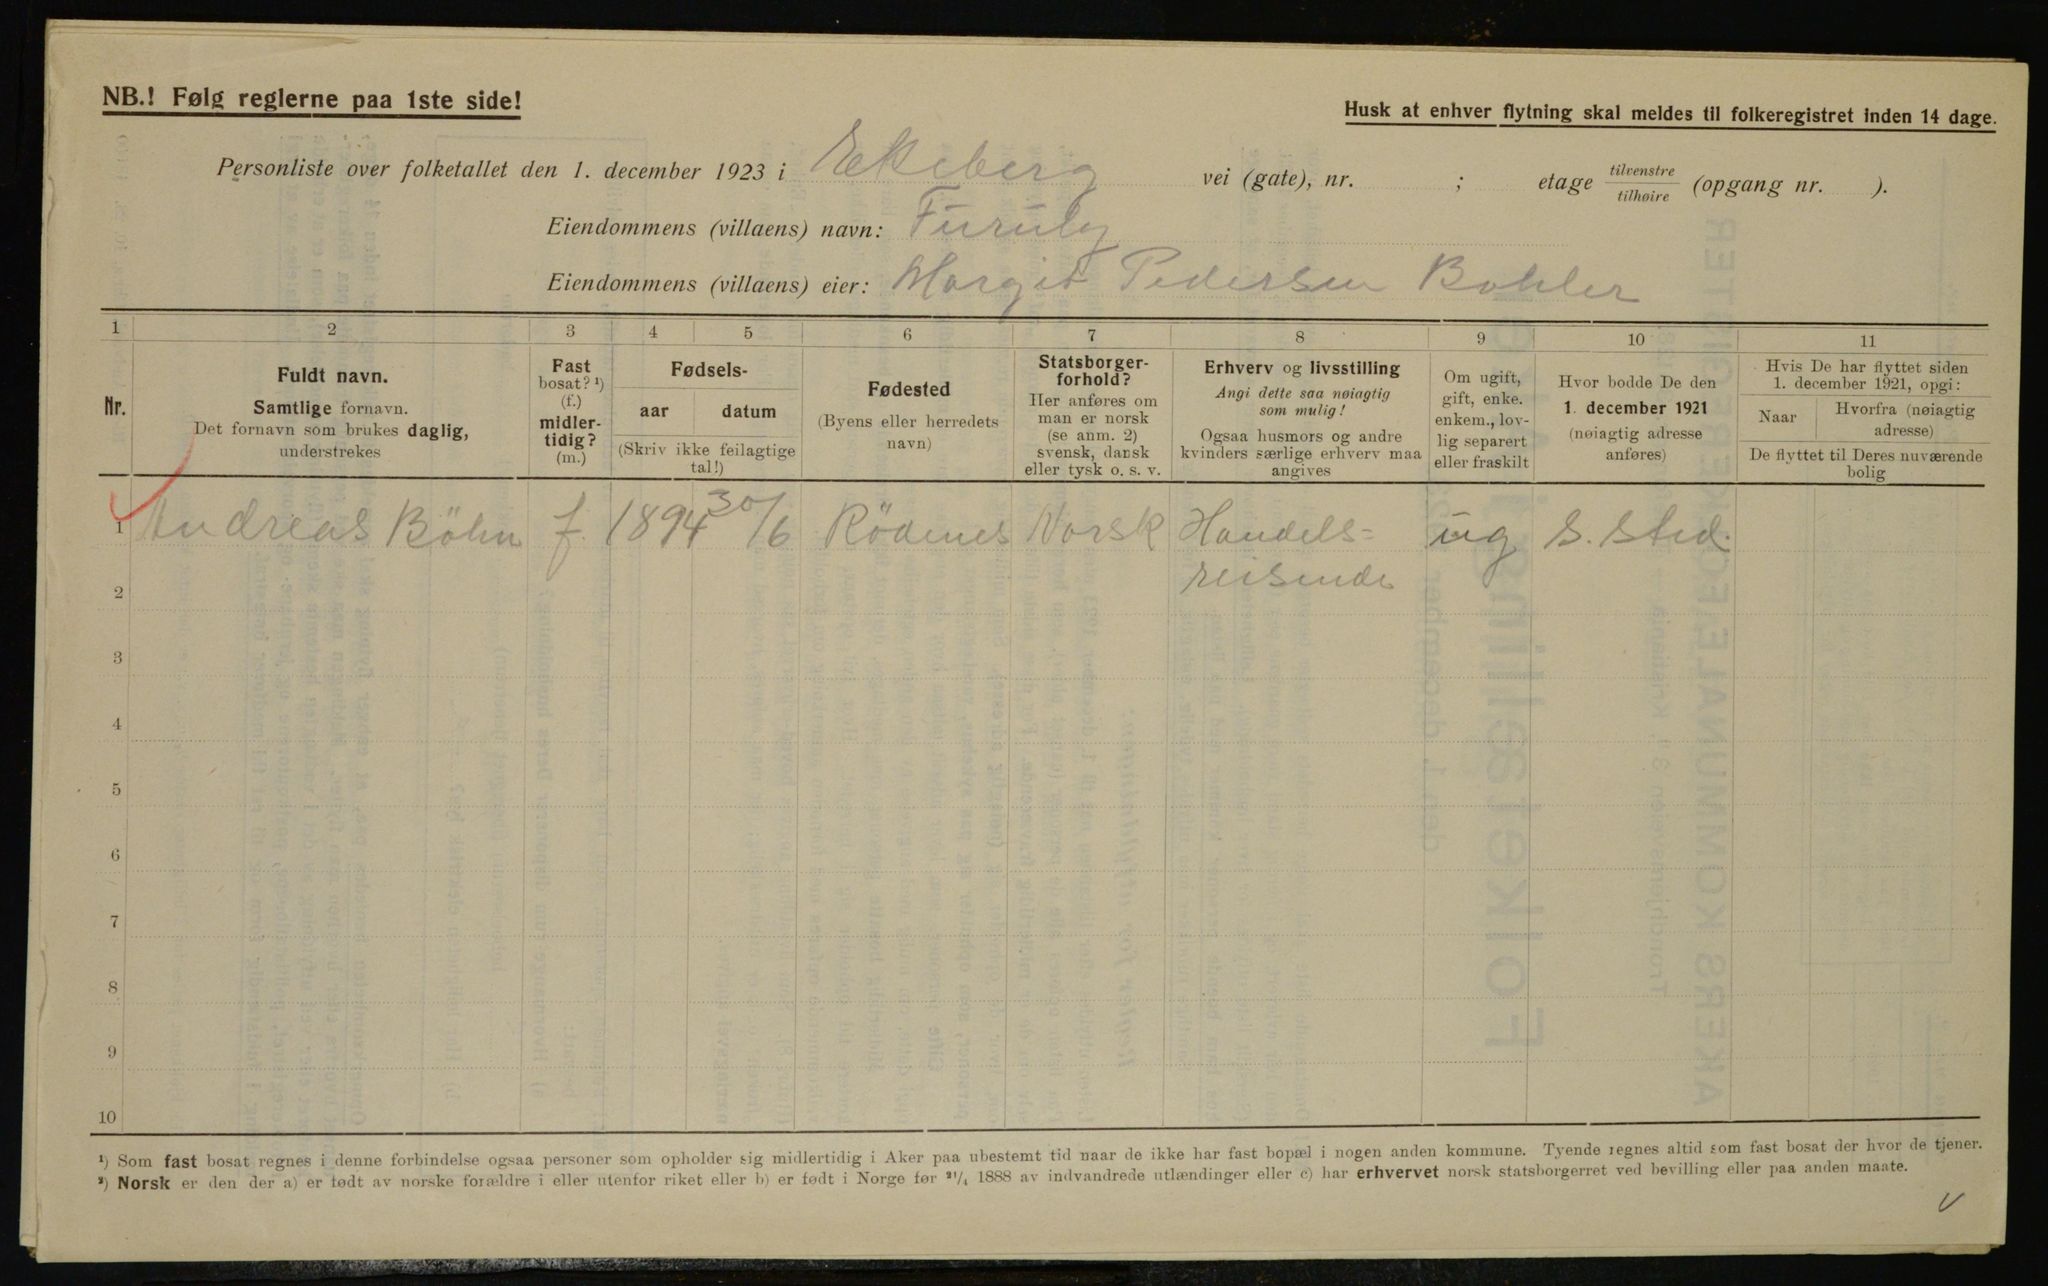 NB.! Følg reglerne paa 1ste side!
Husk at enhver flytning skal meldes til folkeregistret inden 14 dage.
Personliste over folketallet den 1. december 1923 i Ekeberg vei (gate), nr. ; etage tilvenstre/tilhøire (opgang nr. ).
Eiendommens (villaens) navn: Furuly
Eiendommens (villaens) eier: Margit Pedersen Bohler
1 2 3 4 5 6 7 8 9 10 11
Nr.
Fuldt navn.
Samtlige fornavn.
Det fornavn som brukes daglig,
understrekes
Fast
bosat? ¹)
(f.)
midler-
tidig?
(m.)
Fødsels-
aar datum
(Skriv ikke feilagtige
tal!)
Fødested
(Byens eller herredets
navn)
Statsborger-
forhold?
Her anføres om
man er norsk
(se anm. 2)
svensk, dansk
eller tysk o. s. v.
Erhverv og livsstilling
Angi dette saa nøiagtig
som mulig!
Ogsaa husmors og andre
kvinders særlige erhverv maa
angives
Om ugift,
gift, enke.
enkem., lov-
lig separert
eller fraskilt
Hvor bodde De den
1. december 1921
(nøiagtig adresse
anføres)
Hvis De har flyttet siden
1. december 1921, opgi:
Naar Hvorfra (nøiagtig
adresse)
De flyttet til Deres nuværende
bolig
1 Andreas Böhn f. 1894 30/6 Rödenes Norsk Handels= ug S. Sted.
reisende
2
3
4
5
6
7
8
9
10
¹) Som fast bosat regnes i denne forbindelse ogsaa personer som opholder sig midlertidig i Aker paa ubestemt tid naar de ikke har fast bopæl i nogen anden kommune. Tyende regnes altid som fast bosat der hvor de tjener.
²) Norsk er den der a) er født av norske forældre i eller utenfor riket eller b) er født i Norge før ²¹/₄ 1888 av indvandrede utlændinger eller c) har erhvervet norsk statsborgerret ved bevilling eller paa anden maate.